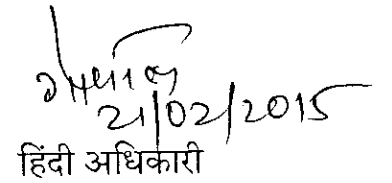 गोपाल
21/02/2015
हिंदी अधिकारी